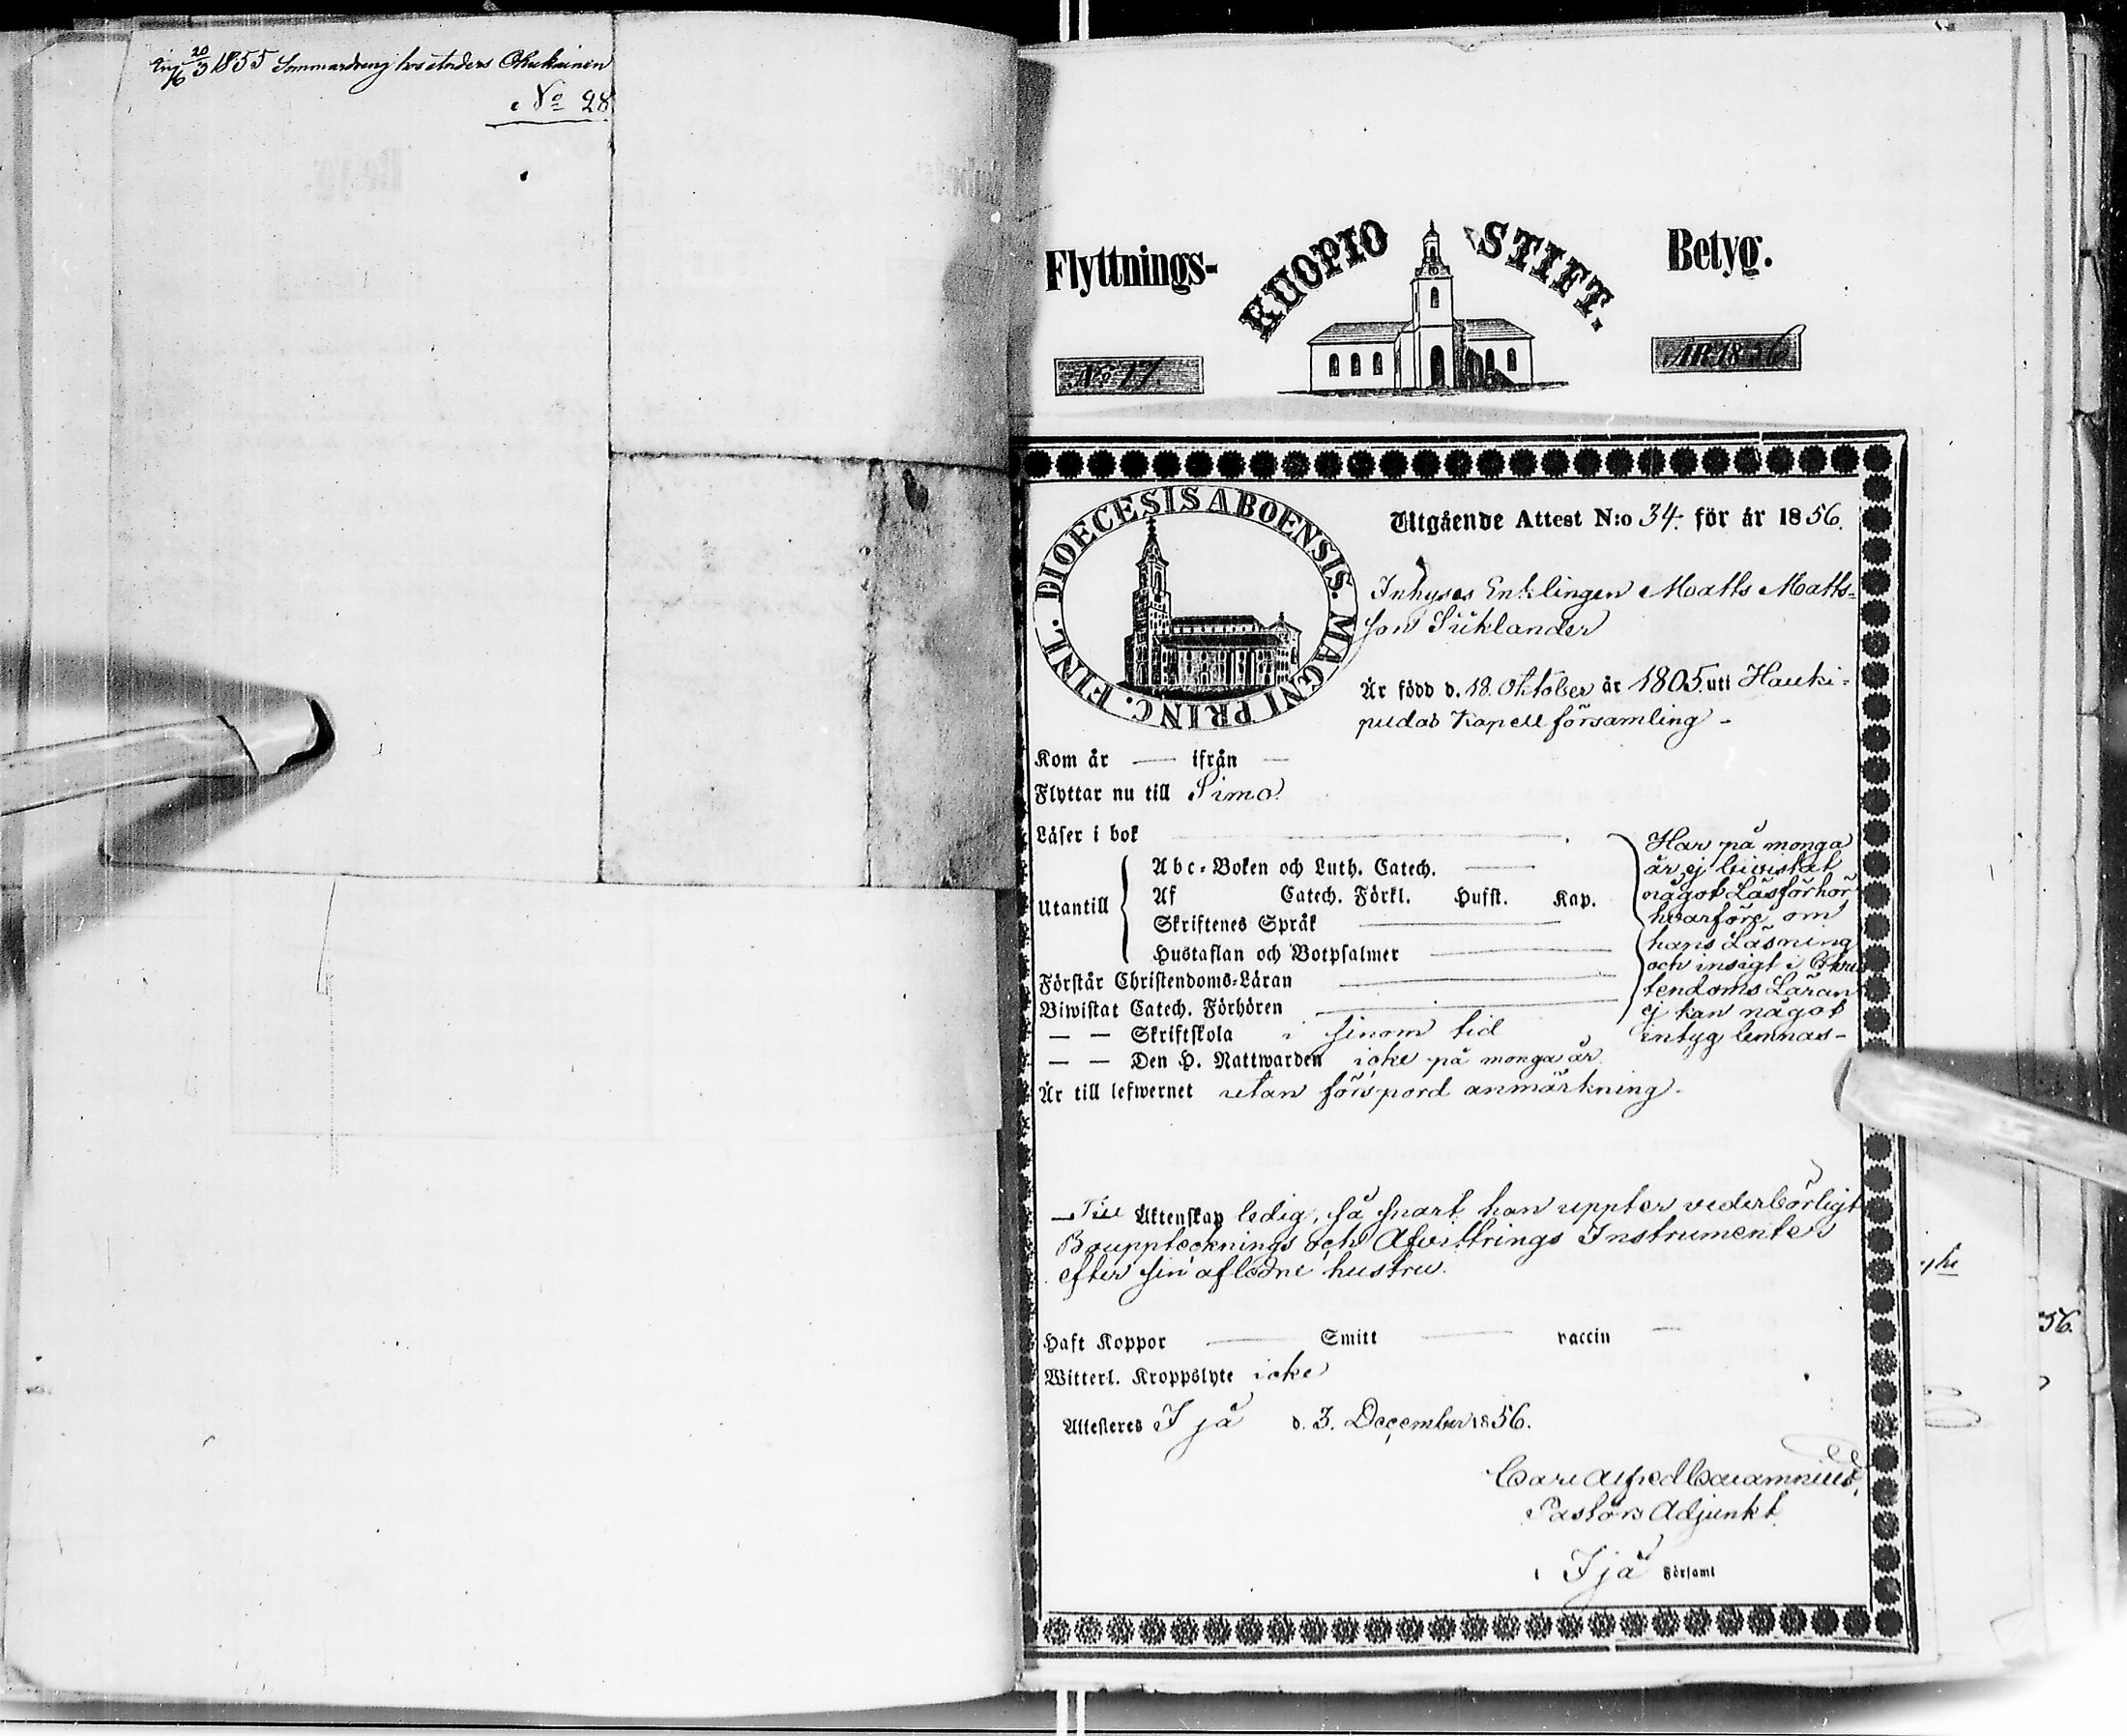 20/3 1855 Sommardreng hos Anders
No 28
Flyttnings- KUOPIO STIFT. Betyg.
No 17. ÅR 1856
DIOECESIS ABOENSIS. MAGNI PRINC. FINL.
Utgående Attest N:o 34. för år 1856.
Inhyses Enklingen Matts Matts-
son Siiklander
Är född d. 18. Oktober år 1805. uti Hauki-
pudas Kapell församling -
Kom år — ifrån —
Flyttar nu till Simo.
Läser i bok
Abc-Boken och Luth. Catech.
Utantill
Af Catech. Förkl. Hufst. Kap.
Skriftenes Språk
Hustaflan och Botpsalmer
Förstår Christendoms-Läran
Biwistat Catech. Förhören
— — Skriftskola i sinom tid
— — Den H. Nattwarden icke på monga år
Har på monga
år ej biwistat
något Läsförhör,
hvarföre om
hans Läsning
och insigt i Chris
tendoms Läran
ej kan något
intyg lemnas-
Är till lefwernet utan försspord anmärkning.
— Till Äktenskap ledig, så snart han uppter vederbörligt
Boupptecknings och Afvittrings Instrumenter
efter sin afledne hustru.
Haft Koppor — Smitt — vaccin —
Witterl. Kroppslyte icke
Attesteres Ijå d. 3. December 1856.
Carl Alfred
Pastors Adjunkt
i Ijå Församl
56.